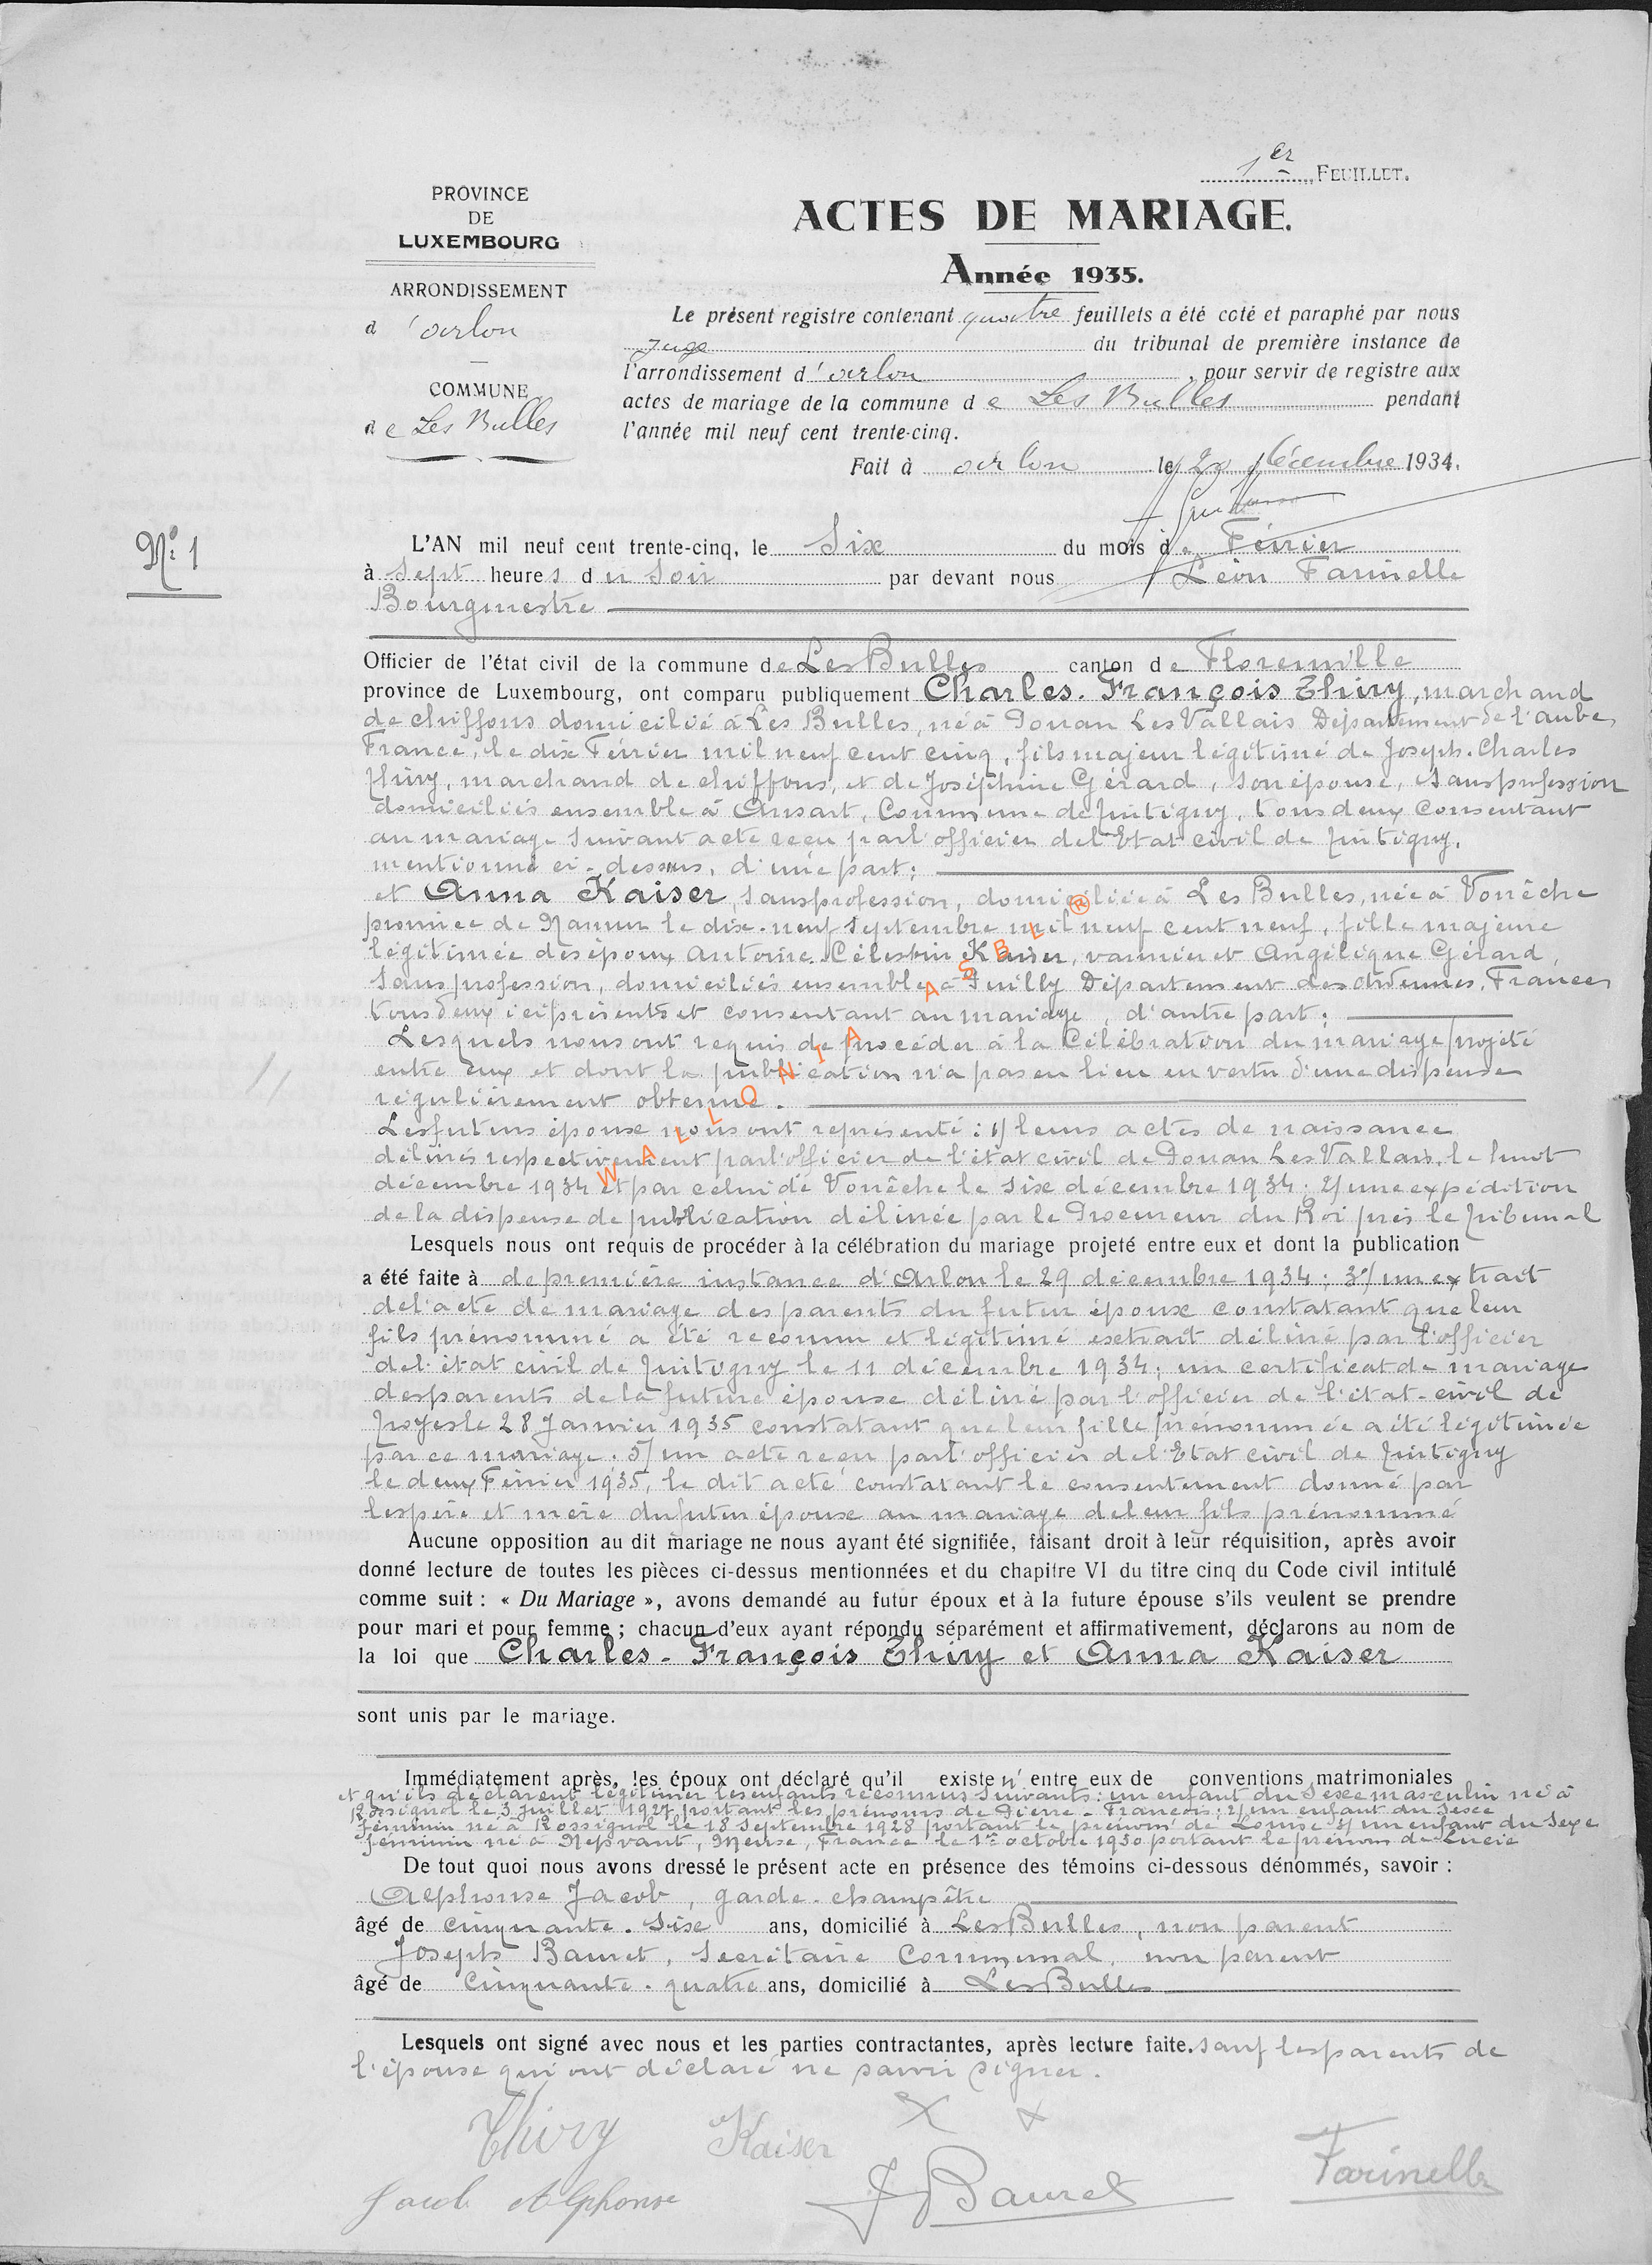 1er FEUILLET.
PROVINCE
DE
LUXEMBOURG
ARRONDISSEMENT
d'Arlon
COMMUNE
de Les Bulles
ACTES DE MARIAGE.
Année 1935.
Le présent registre contenant quatre feuillets a été coté et paraphé par nous
Juge du tribunal de première instance de
l'arrondissement d'Arlon, pour servir de registre aux
actes de mariage de la commune de Les Bulles pendant
l'année mil neuf cent trente-cinq.
Fait à Arlon le 20 Décembre 1934.
No 1
L'AN mil neuf cent trente-cinq, le Six du mois de Février
à Sept heures du Soir par devant nous Léon Farinelle
Bourgmestre
Officier de l'état civil de la commune de Les Bulles canton de Florenville
province de Luxembourg, ont comparu publiquement Charles-François Thiry, marchand
de chiffons domicilié à Les Bulles, né à Donan Les Vallais Département de l'aube,
France, le dix Février mil neuf cent cinq, fils majeur légitimé de Joseph-Charles
Thiry, marchand de chiffons, et de Joséphine Gérard, son épouse, sans profession
domiciliés ensemble à Ansart, Commune de Tintigny, tous deux consentant
au mariage suivant acte reçu par l'officier del'Etat civil de Tintigny.
mentionné ci-dessus, d'une part:
et Anna Kaiser, sans profession, domiciliée à Les Bulles, née à Vonêche
province de Namur le dix-neuf Septembre mil neuf cent neuf, fille majeure
légitimée des époux Antoine Célestin Kaiser, vannier et Angélique Gérard,
sans profession, domiciliés ensemble à Puilly Département des Ardennes, France,
tous deux ici présents et consentant au mariage, d'autre part:
Lesquels nous ont requis de procéder à la Célébration du mariage projeté
entre eux et dont la publication n'a pas eu lieu en vertu d'une dispense
régulièrement obtenue.
Les futurs époux nous ont représenté: 1/ leurs actes de naissance
délivrés respectivement par l'officier de l'état civil de Donan Les Vallais, le huit
décembre 1934 et par celui de Vonêche le six décembre 1934; 2/ une expédition
de la dispense de publication délivrée par le Procureur du Roi près le Tribunal
Lesquels nous ont requis de procéder à la célébration du mariage projeté entre eux et dont la publication
a été faite à de première instance d'Arlon le 29 décembre 1934; 3°/ un extrait
del'acte de mariage des parents du futur époux constatant que leur
fils prénommé a été reconnu et légitimé extrait délivré par l'officier
del'état civil de Tintigny le 11 décembre 1934; un certificat de mariage
des parents de la future épouse délivré par l'officier de l'état-civil de
Troyes le 28 Janvier 1935 constatant que leur fille prénommée a été légitimée
par ce mariage; 5/ un acte reçu par l'officier del'Etat civil de Tintigny
le deux Février 1935, le dit acte constatant le consentement donné par
les père et mère du futur époux au mariage de leur fils prénommé
Aucune opposition au dit mariage ne nous ayant été signifiée, faisant droit à leur réquisition, après avoir
donné lecture de toutes les pièces ci-dessus mentionnées et du chapitre VI du titre cinq du Code civil intitulé
comme suit : « Du Mariage », avons demandé au futur époux et à la future épouse s'ils veulent se prendre
pour mari et pour femme ; chacun d'eux ayant répondu séparément et affirmativement, déclarons au nom de
la loi que Charles-François Thiry et Anna Kaiser
sont unis par le mariage.
Immédiatement après, les époux ont déclaré qu'il n'existe entre eux de conventions matrimoniales
et qu'ils déclarent légitimer les enfants reconnus suivants: un enfant du Sexe masculin né à
Rossignol le 3 Juillet 1927 portant les prénoms de Pierre-François; 2/ un enfant du Sexe
féminin né à Rossignol le 18 Septembre 1928 portant le prénom de Louise 3/ un enfant du Sexe
féminin né à Nepvant, Meuse, France le 1er octobre 1930 portant le prénom de Lucie
De tout quoi nous avons dressé le présent acte en présence des témoins ci-dessous dénommés, savoir :
Alphonse Jacob, garde-champêtre
âgé de cinquante-six ans, domicilié à Les Bulles, non parent
Joseph Bauret, Secrétaire Communal, non parent
âgé de cinquante-quatre ans, domicilié à Les Bulles
Lesquels ont signé avec nous et les parties contractantes, après lecture faite. sauf les parents de
l'épouse qui ont déclaré ne savoir signer.
Thiry Kaiser X X
Jacob Alphonse J Bauret Farinelle
WALLONIA ASBL ®